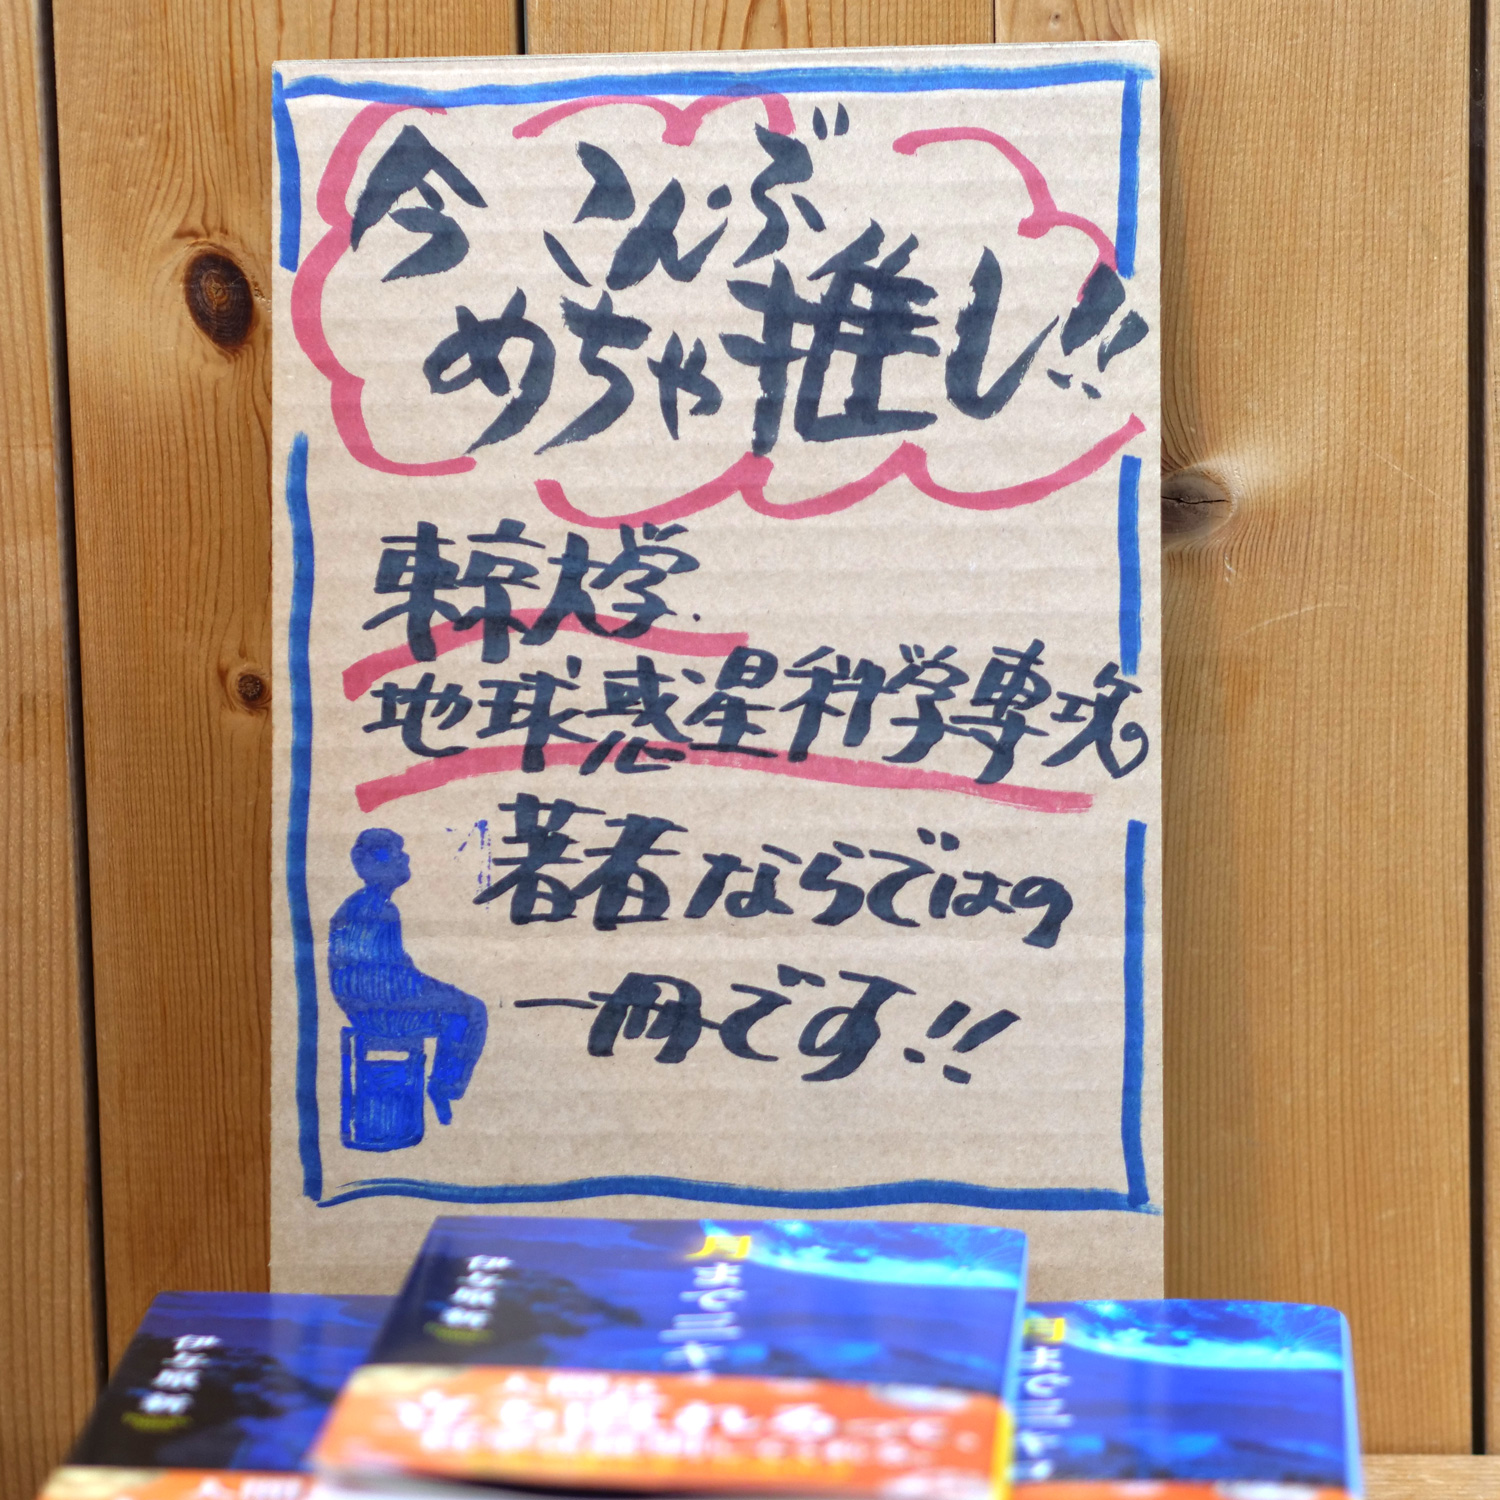 今 こんぶ
めちゃ推し!!
東京大学
地球惑星科学専攻
著者ならではの
一冊です!!
伊与原 新
月まで三キ
伊与原 新
月まで三キロ